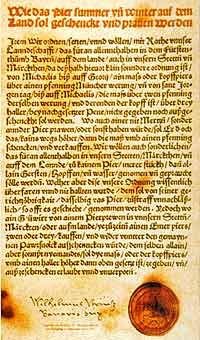 Wie das pier summer vñ winter auf dem
Land sol geschenckt vnd prauen werden
Item Wir ordnen, setzen, vnnd wöllen, mit Rathe vnnser
Lanndtschafft, das füran allennthalben in dem Fürsten-
thumb Bayrn, auff dem lande, auch in vnsern Stetten vñ
Märckthen, da deßhalb hieuor kain sonndere ordnung ist,
von Michaelis biß auff Georij, ain mass oder kopffpiers
über ainen pfenning Müncher werung, vñ von sant Jör-
gentag, biß auff Michaelis, die mass über zwen pfenning
derselben werung, vnd derenden der kopff ist, über drey
haller, bey nachgesetzter Pene, nicht gegeben noch außge-
schenckht sol werden. Wo auch ainer nit Mertzn, sonder
annder Pier prawen, oder sonst haben würde, sol Er doch
das, kains wegs höher, dann die maß vmb ainen pfenning
schencken, vnd verkauffen. Wir wöllen auch sonnderlichen,
das füran allenthalben in vnsern Stetten, Märckthen, vñ
auff dem Lannde, zu kainem Pier, merer stückh, dañ al-
lain Gersten, Hopffen, vñ wasser, genomen vñ gepraucht
sölle werdñ. Welher aber dise vnsere Ordnung wissentlich
überfaren vnnd nit hallten wurde, dem sol von seiner ge-
richtzöbrigkait, dasselbig vas Pier, zustraff vnnachläß-
lich, so offt es geschicht, genommen werden. Yedoch wo
ain Güwirt von ainem Pierprewen in vnnsern Stettñ,
Märckten, oder aufm lande, yezuzeitñ ainen Emer piers,
zwen oder drey, kauffen, vnd wider vnnter den gemayn-
nen Pawrsuolck ausschenncken würde, dem selben allain,
aber sonnst nyemandes, sol dye mass, oder der kopffpiers,
vmb ainen haller höher dann oben gesetzt ist, zegeben, vñ
außzeschencken erlaubt vnnd vnuerpotñ.